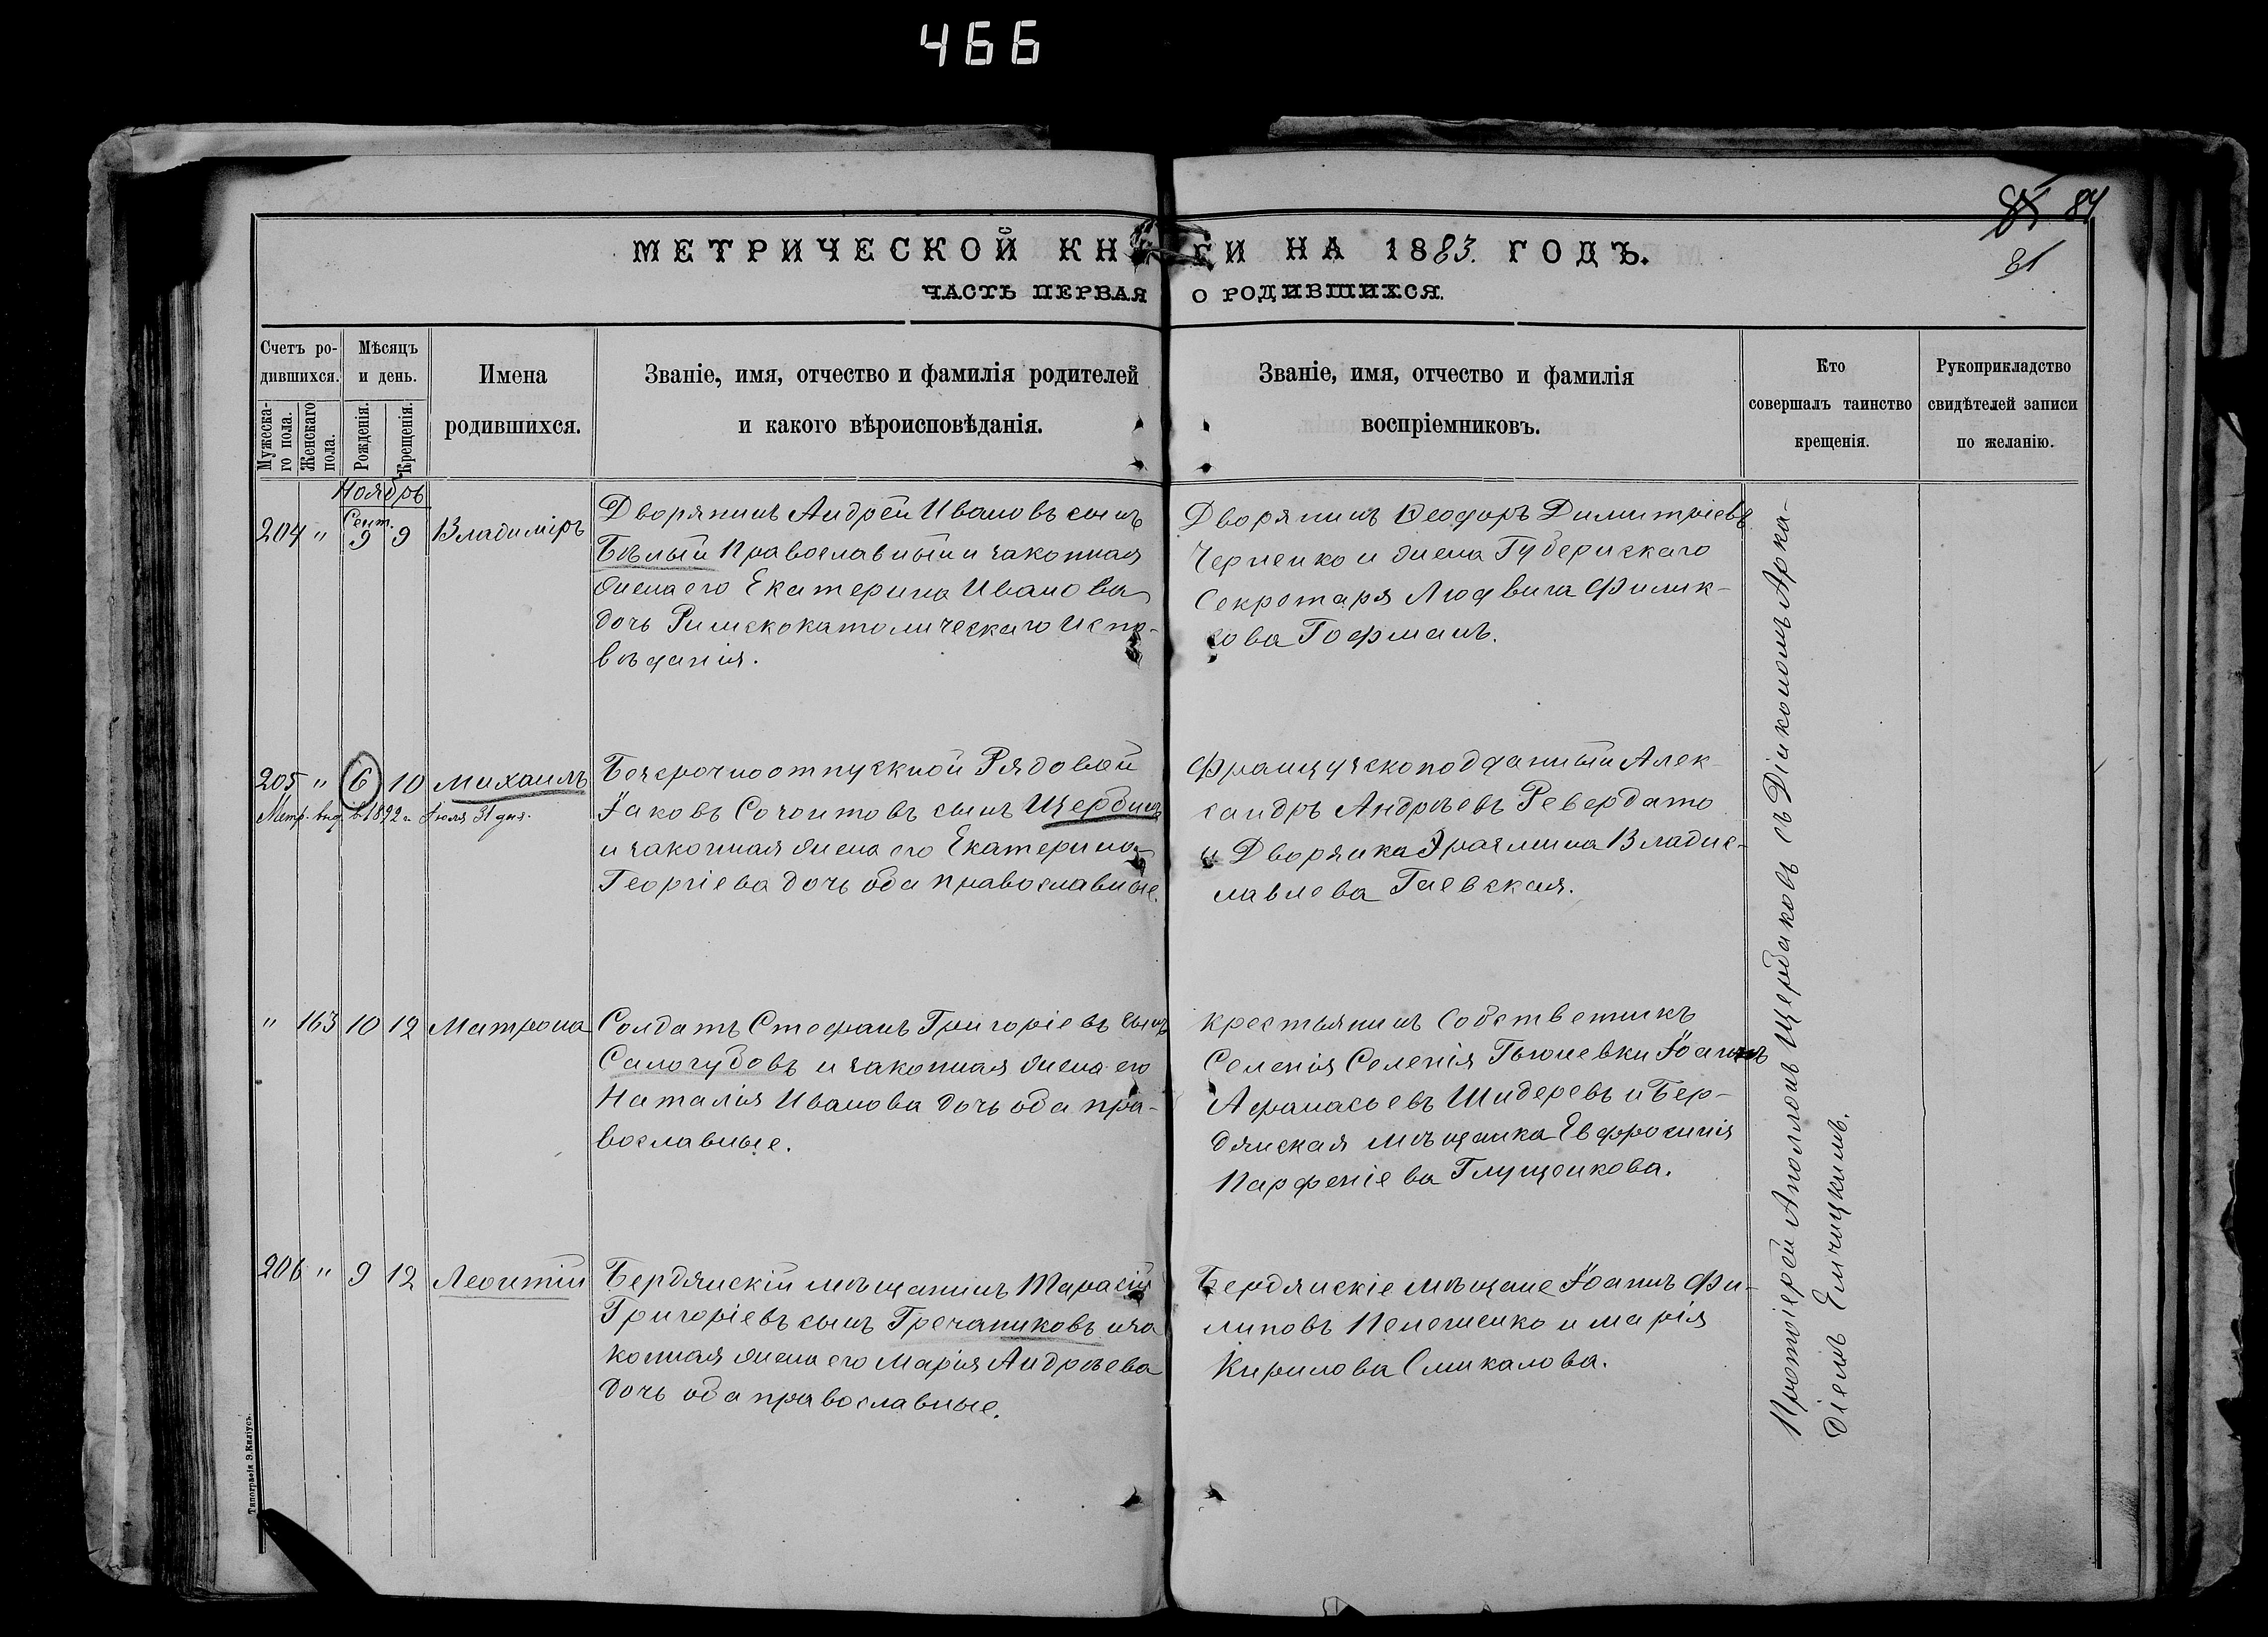 466
84
81
МЕТРИЧЕСКОЙ КНИГИ НА 1883. ГОДЪ.
ЧАСТЬ ПЕРВАЯ О РОДИВШИХСЯ.
Счетъ ро-
дившихся.
Мужеска-
го пола.
Женскаго
пола.
Мѣсяцъ
и день.
Рожденія.
Крещенія.
Имена
родившихся.
Званіе, имя, отчество и фамилія родителей
и какого вѣроисповѣданія.
Званіе, имя, отчество и фамилія
воспріемниковъ.
Кто
совершалъ таинство
крещенія.
Рукоприкладство
свидѣтелей записи
по желанію.
Ноябрь
204 " Сент. 9 9 Владиміръ
Дворянинъ Андрей Ивановъ сынъ
Бѣлый Православный и законная
жена его Екатерина Иванова
дочь Римскокатолическаго Испо-
вѣданія.
Дворянинъ Ѳеодоръ Димитріевъ
Черненко и жена Губернскаго
Секретаря Людвига Филик-
сова Гофманъ.
205 " 6 10 Михаилъ
Метр. выд. в 1892 г. Іюля 31 дня.
Безсрочноотпускной Рядовой
Іаковъ Созонтовъ сынъ Щербина
и законная жена его Екатерина
Георгіева дочь оба православные.
Французскоподданный Алек-
сандръ Андреевъ Ревердато
и Дворянка Эразмина Владис-
лавлева Гаевская.
" 163 10 12 Матрона
Солдатъ Стефанъ Григоріевъ сынъ
Самогудовъ и законная жена его
Наталія Иванова дочь оба пра-
вославные.
Крестьянинъ Собственникъ
Селенія Селенія Гюневки Іоаннъ
Афанасьевъ Шидеревъ и Бер-
дянская мѣщанка Евфросинія
Парфеніева Глущенкова.
206 " 9 12 Леонтій
Бердянскій мѣщанинъ Тарасій
Григоріевъ сынъ Гречаниковъ и за
конная жена его Марія Андреева
дочь оба православные.
Бердянскіе мѣщане Іоаннъ Фи-
липовъ Пелешенко и Марія
Кирилова Смикалова.
Протоіерей Аполлонъ Щербаковъ съ Діакономъ Арка-
діемъ Еличицкимъ.
Типографія Э. Киліусъ.